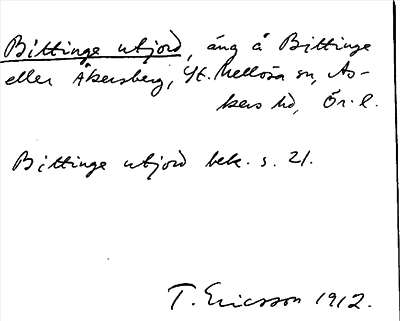 Bittinge utjord, äng å Bittinge
eller Åkersberg, St. Mellösa sn, As-
kers hd, Ör. l.
Bittinge utjord bek. s. 21.
T. Ericsson 1912.